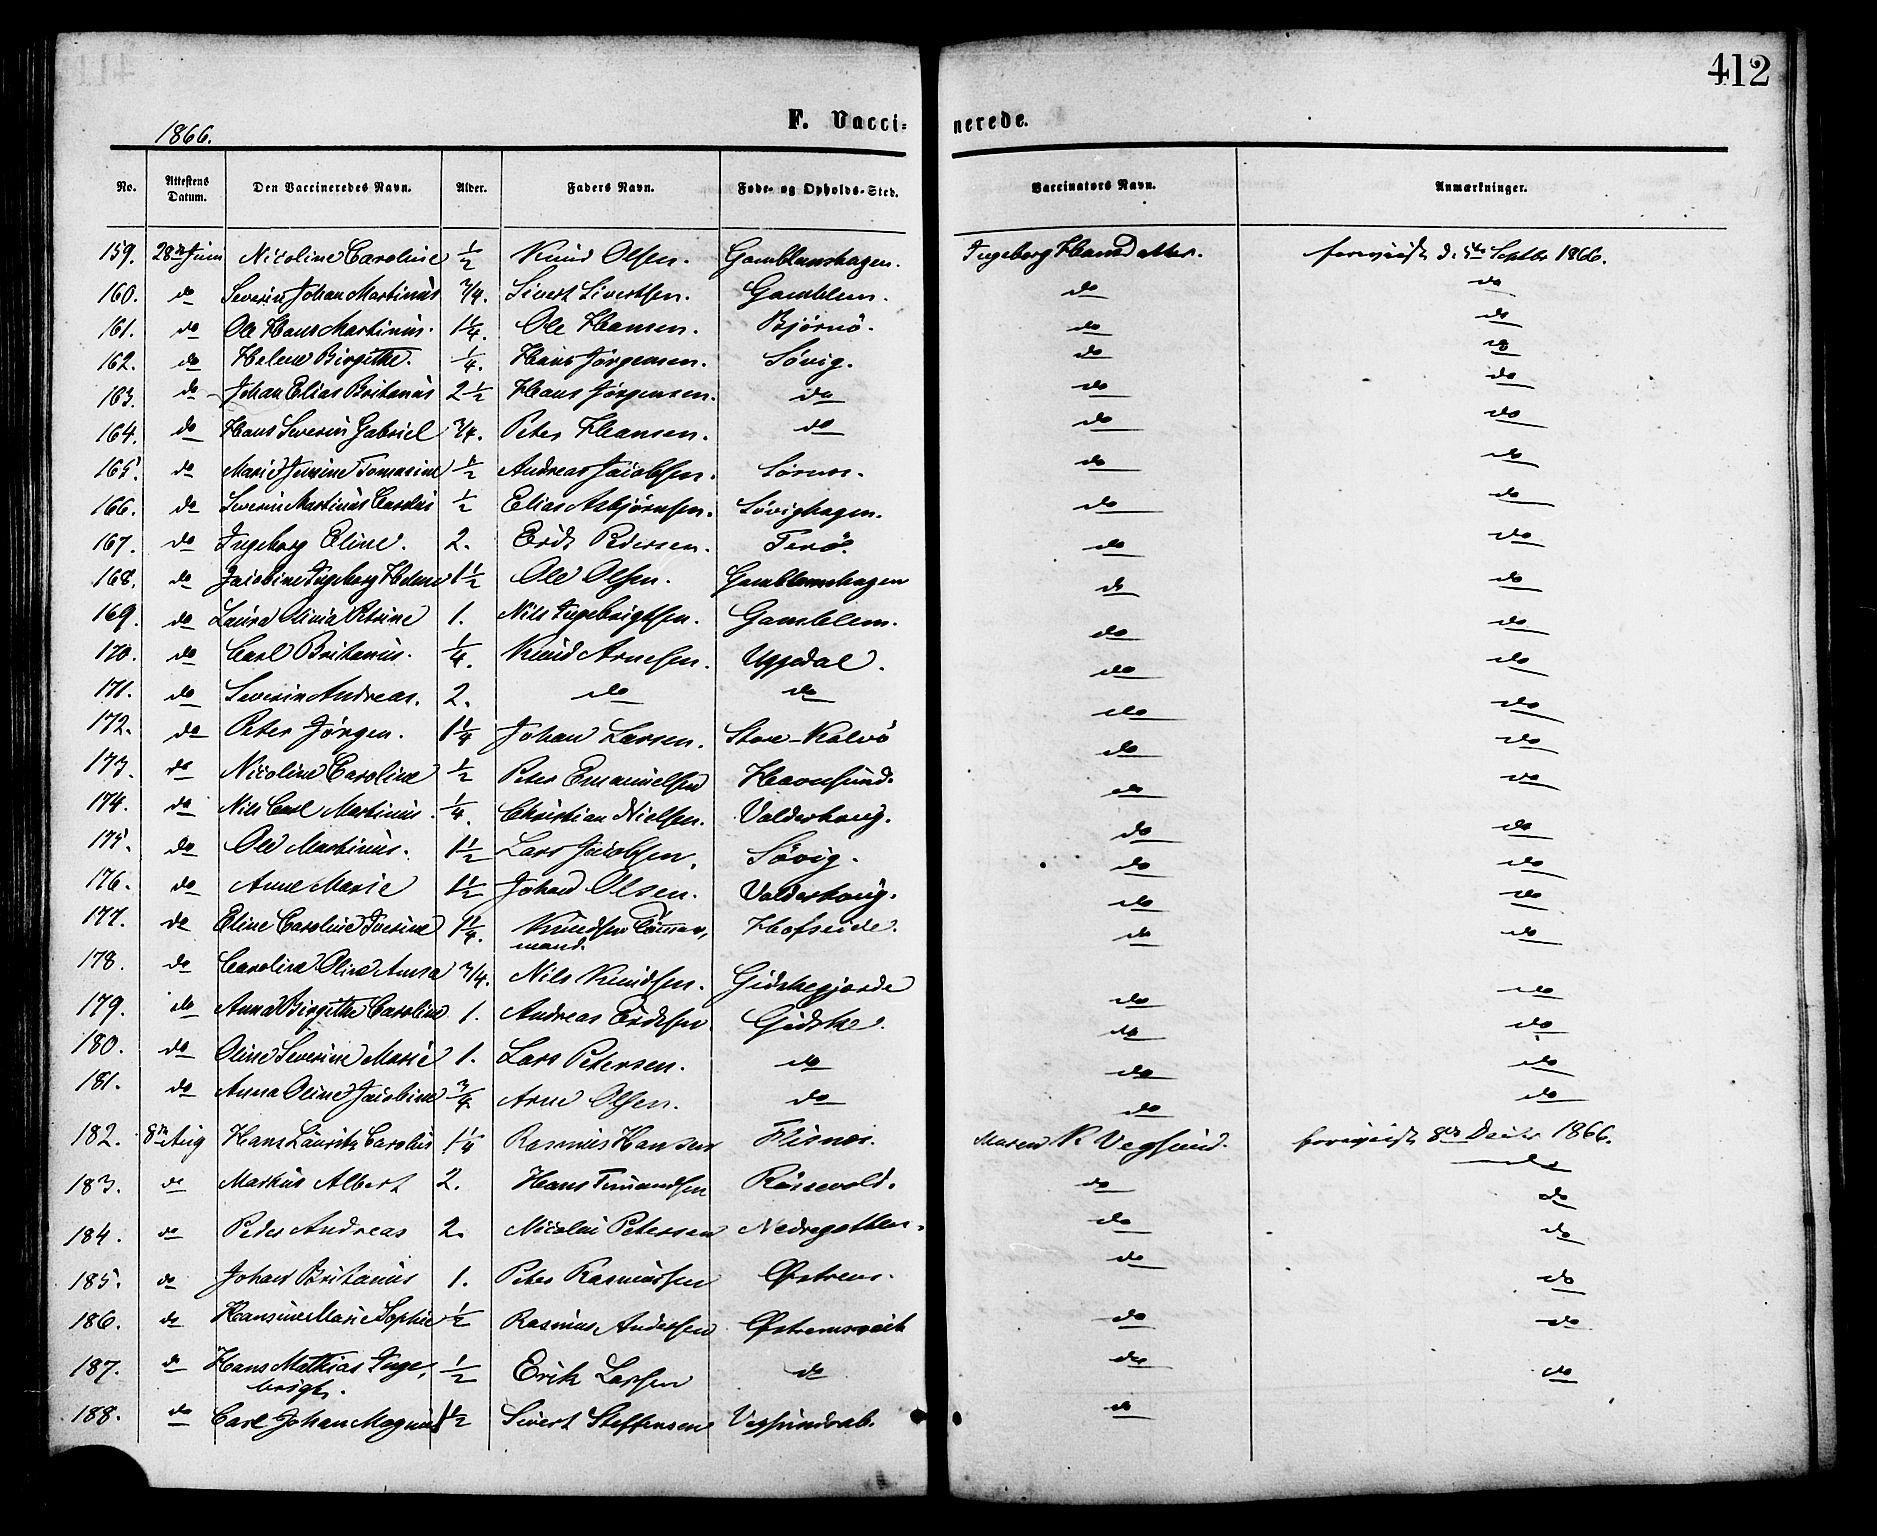 412
1866.
F. Vaccinerede.
No. Attestens Datum. Den Vaccineredes Navn. Alder. Faders Navn. Føde- og Opholds-Sted. Vaccinators Navn. Anmærkninger.
159. 28de Juni Nicoline Caroline 1/2 Knud Olsen. Gamblemshagen. Ingeborg Hansdatter. foreviist d. 5te Septbr 1866.
160. do Severin Johan Martinus 3/4. Sivert Sivertsen. Gamblem. do do
161. do Ole Hans Martinus. 1 1/4. Ole Hansen. Bjørnö. do do
162. do Helene Birgitte. 1/4. Hans Jørgensen. Sövig. do do
163. do Johan Elias Britanus 2 1/2 Hans Jørgensen. do do do
164. do Hans Severin Gabriel 3/4. Peter Hansen. do do do
165. do Marie Tomasine 1/2 Andreas Jacobsen. do do
166. do Severin Martinus Carolus 1/2 Elias Asbjørnsen. Sövighagen. do do
167. do Ingeborg Eline. 2. Erik Pedersen. Terö. do do
168. do Jacobine Ingeborg Helene 1 1/2 Ole Olsen. Gamblemshagen do do
169. do Laura Olivia Petrine 1. Nils Ingebrigtsen. Gamblem. do do
170. do Carl Britanus. 1/4. Knud Arnesen. Uggedal. do do
171. do Severin Andreas. 2. do do do do
172. do Peter Jørgen. 1 1/4 Johan Larsen. Store-Kalvö do do
173. do Nicoline Caroline 1/2 Peter Emanuelsen Havnsund. do do
174. do Nils Carl Martinus. 1/4. Christian Nielsen. Valderhoug. do do
175. do Ole Martinus. 1 1/2 Lars Jacobsen. Sövig. do do
176. do Anne Marie 1 1/2 Johan Olsen. Valderhoug. do do
177. do Eline Caroline Iverine 1 1/4. Knudsen Tömmermand. Hofseide. do do
178. do Carolina Olina Anna 3/4. Nils Knudsen. Gidskegjerde do do
179. do Anna Birgitte Caroline 1. Andreas Eriksen. Gidske. do do
180. do Oline Severine Marie 1. Lars Petersen. do do do
181. do Anna Oline Jacobine 3/4. Arne Olsen. do do do
182. 8de Aug Hans Lauritz Carolus 1 1/4 Rasmus Hansen Flisnes. Maren K Vegsund. foreviist 8de Decbr 1866.
183. do Markus Albert 2. Hans Timandsen Rössevold. do do
184. do Peder Andreas 2. Nicolai Petersen Nedregotten. do do
185. do Johan Britanus 1. Peter Rasmussen Østrem. do do
186. do Hansine Marie Sophie 1/2 Rasmus Andersen Østremsvik do do
187. do Hans Mathias Ingebrigt. 1/2 Erik Larsen do do do
188. do Carl Johan Magnus 1 1/2 Sivert Steffensen do do